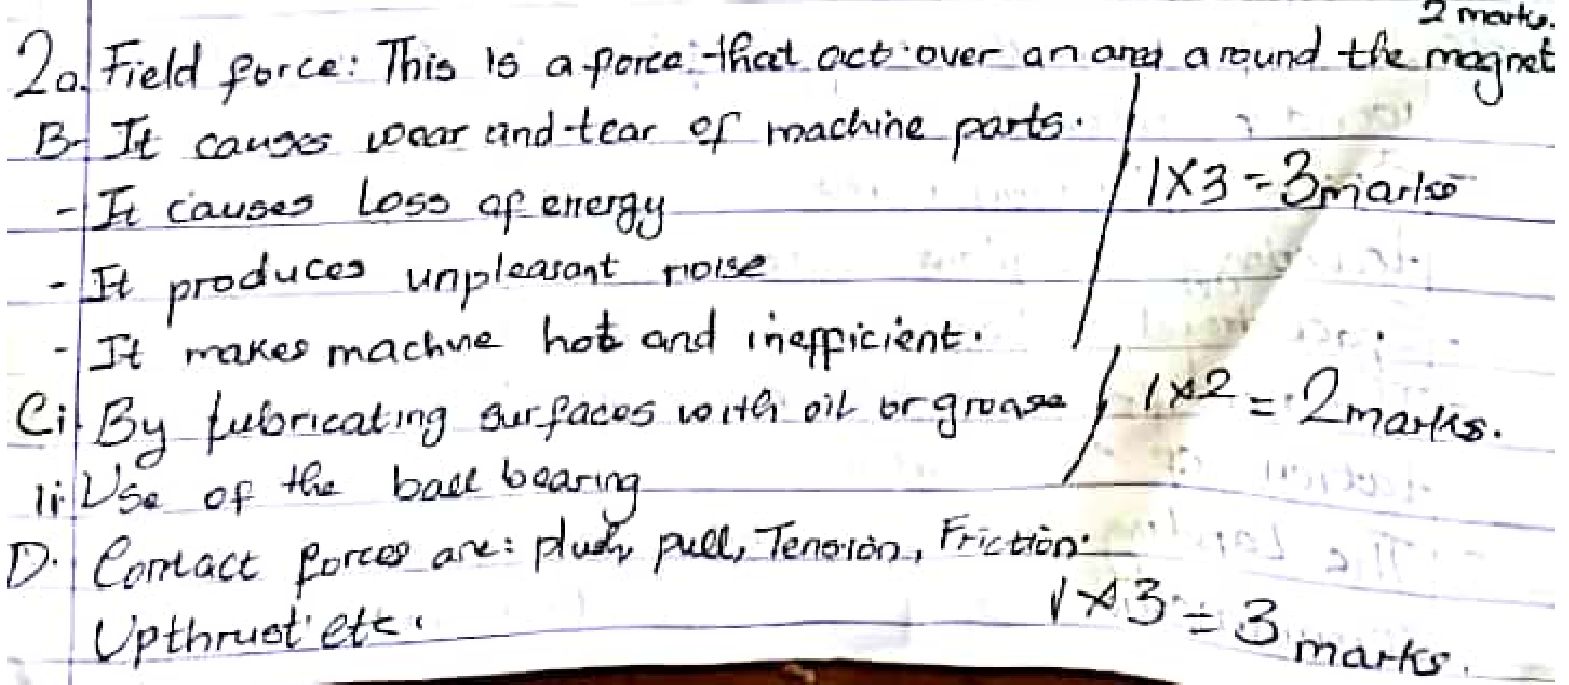 2 marks.
2a. Field force: This is a force that act over an area around the magnet
B- It causes wear and tear of machine parts.
1x3 = 3 marks
- It causes Loss of energy
- It produces unpleasant noise
- It makes machine hot and inefficient.
Ci By lubricating surfaces with oil or grease
1x2 = 2 marks.
ii Use of the ball bearing
D. Contact forces are: push, pull, Tension, Friction.
1x3 = 3 marks.
Upthrust etc.